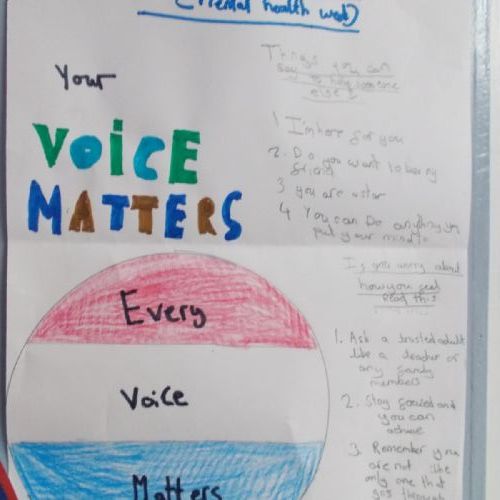 (Mental health week)
Your
VOICE
MATTERS
Every
Voice
Matters
Things you can
say to help someone
else!
1 I'm here for you
2. Do you want to be my
friend
3 you are a star
4 You can Do anything you
put your mind to
If you worry about
how you feel
Read this
1. Ask a trusted adult
like a teacher or
any family
members
2. Stay focused and
you can
achieve
3. Remember you
are not the
only one that
gos through